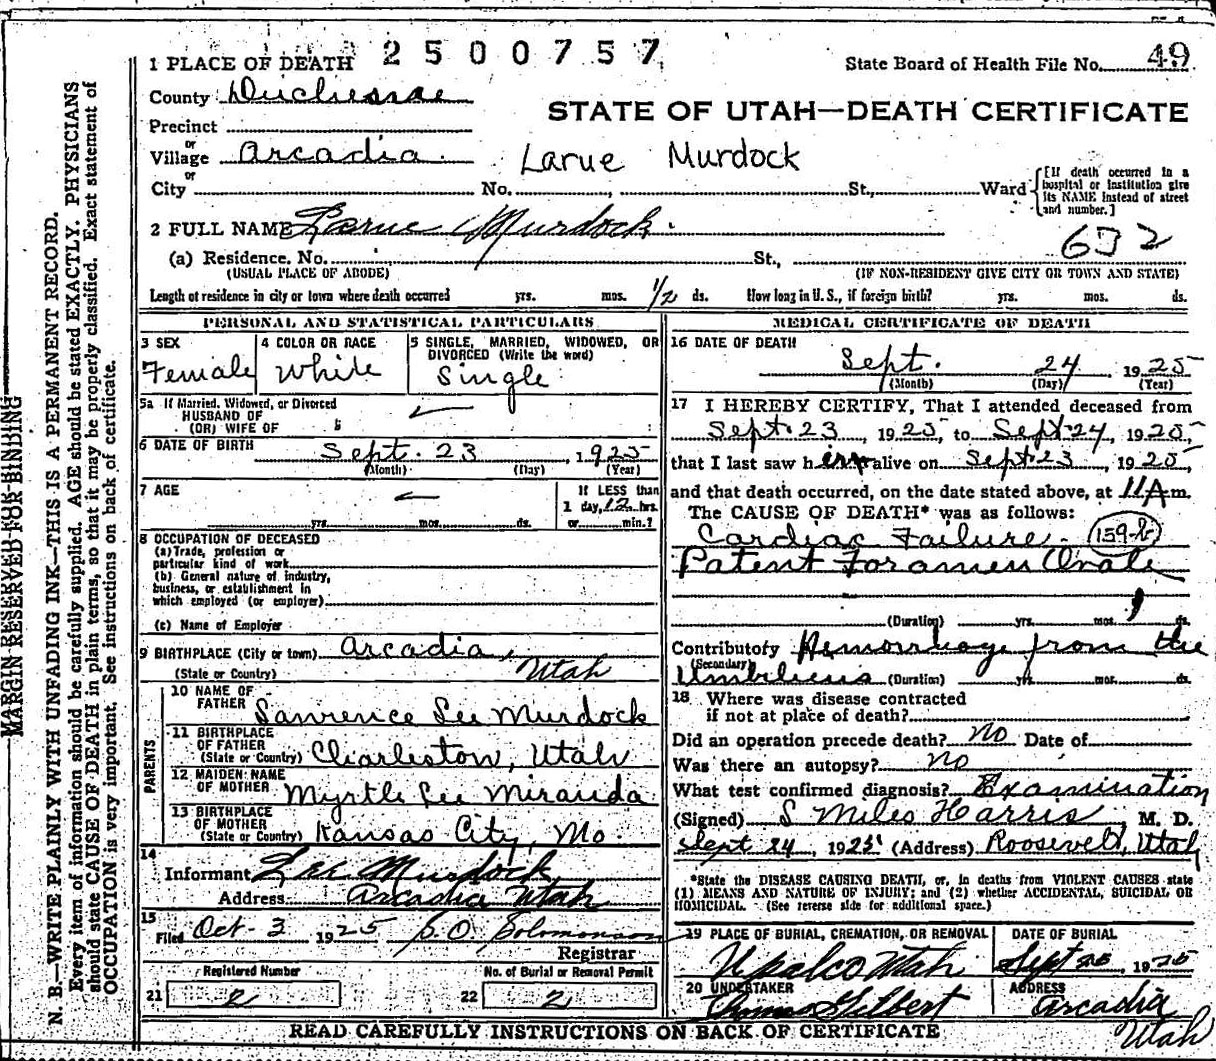 2500757
1 PLACE OF DEATH
State Board of Health File No. 49
County Duchesne
STATE OF UTAH—DEATH CERTIFICATE
Precinct
or
Village Arcadia
Larue Murdock
or
City No. , St., Ward
[If death occurred in a hospital or institution give its NAME instead of street and number.]
2 FULL NAME Larue Murdock.
632
(a) Residence. No. St.,
(USUAL PLACE OF ABODE) (IF NON-RESIDENT GIVE CITY OR TOWN AND STATE)
Length of residence in city or town where death occurred yrs. mos. 1/2 ds. How long in U. S., if foreign birth? yrs. mos. ds.
PERSONAL AND STATISTICAL PARTICULARS
3 SEX Female
4 COLOR OR RACE White
5 SINGLE, MARRIED, WIDOWED, OR DIVORCED (Write the word) Single
5a If Married, Widowed, or Divorced
HUSBAND OF
(OR) WIFE OF
6 DATE OF BIRTH Sept. 23, 1925
(Month) (Day) (Year)
7 AGE
yrs. mos. ds.
If LESS than
1 day, 12 hrs.
or min.?
8 OCCUPATION OF DECEASED
(a) Trade, profession or
particular kind of work
(b) General nature of industry,
business, or establishment in
which employed (or employer)
(c) Name of Employer
9 BIRTHPLACE (City or town) Arcadia,
(State or Country) Utah
PARENTS
10 NAME OF FATHER Lawrence Lee Murdock
11 BIRTHPLACE OF FATHER (State or Country) Charleston, Utah
12 MAIDEN NAME OF MOTHER Myrtle Lee Miranda
13 BIRTHPLACE OF MOTHER (State or Country) Kansas City, Mo
14
Informant Lee Murdock
Address Arcadia Utah
15
Filed Oct-3 1925 S.O. Solomonson
Registrar
Registered Number
21 2
No. of Burial or Removal Permit
22 2
MEDICAL CERTIFICATE OF DEATH
16 DATE OF DEATH
Sept. 24 1925
(Month) (Day) (Year)
17 I HEREBY CERTIFY, That I attended deceased from
Sept. 23, 1925, to Sept. 24, 1925,
that I last saw her alive on Sept. 23, 1925,
and that death occurred, on the date stated above, at 11 A m.
The CAUSE OF DEATH* was as follows:
Cardiac Failure. 159-b
Patent Foramen Ovale
(Duration) yrs. mos. ds.
Contributory Hemorrhage from the
(Secondary) Umbilicus (Duration) yrs. mos. ds.
18 Where was disease contracted
if not at place of death?
Did an operation precede death? No Date of
Was there an autopsy? no
What test confirmed diagnosis? Examination
(Signed) S Miles Harris, M. D.
Sept 24, 1925 (Address) Roosevelt, Utah
*State the DISEASE CAUSING DEATH, or, in deaths from VIOLENT CAUSES state
(1) MEANS AND NATURE OF INJURY; and (2) whether ACCIDENTAL, SUICIDAL OR
HOMICIDAL. (See reverse side for additional space.)
19 PLACE OF BURIAL, CREMATION, OR REMOVAL
Upalco Utah
DATE OF BURIAL
Sept 25, 1925
20 UNDERTAKER
Thomas Gilbert
ADDRESS
Arcadia
Utah
READ CAREFULLY INSTRUCTIONS ON BACK OF CERTIFICATE
MARGIN RESERVED FOR BINDING
MARGIN RESERVED FOR BINDING
N. B.—WRITE PLAINLY WITH UNFADING INK—THIS IS A PERMANENT RECORD.
Every item of information should be carefully supplied. AGE should be stated EXACTLY. PHYSICIANS
should state CAUSE OF DEATH in plain terms, so that it may be properly classified. Exact statement of
OCCUPATION is very important. See instructions on back of certificate.